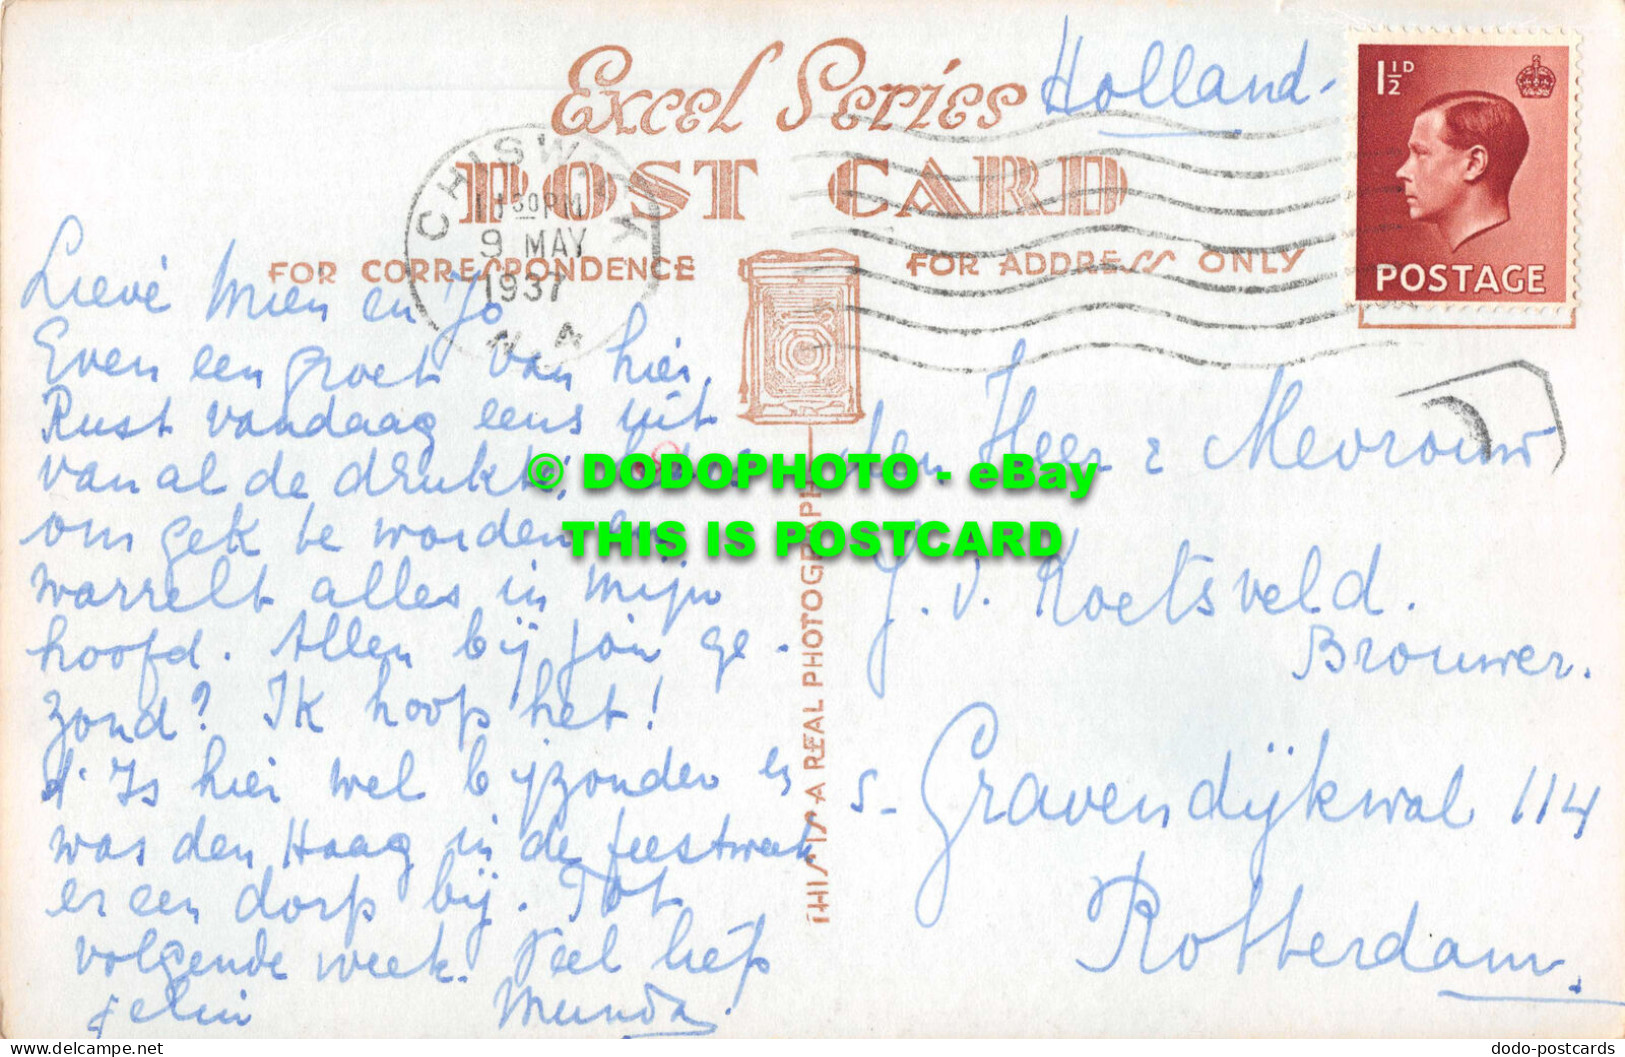 Excel Series
Holland.
POST CARD
FOR CORRESPONDENCE
FOR ADDRESS ONLY
CHISWICK
11 30 PM
9 MAY
1937
W. 4
1½D
POSTAGE
Lieve Mien en Jo
Even een groet van hier.
Rust vandaag eens uit
van al de drukte,
om gek te worden, en
warrelt alles in mijn
hoofd. Allen bij jou ge-
zond? Ik hoop het!
't Is hier wel bijzonder er
was den Haag in de feestweek
er een dorp bij. Tot
volgende week. Veel liefs
Munda
THIS IS A REAL PHOTOGRAPH
den Heer & Mevrouw
J. v. Koetsveld.
Brouwer.
s-Gravendijkwal 114
Rotterdam.
© DODOPHOTO - eBay
THIS IS POSTCARD
www.delcampe.net
dodo-postcards